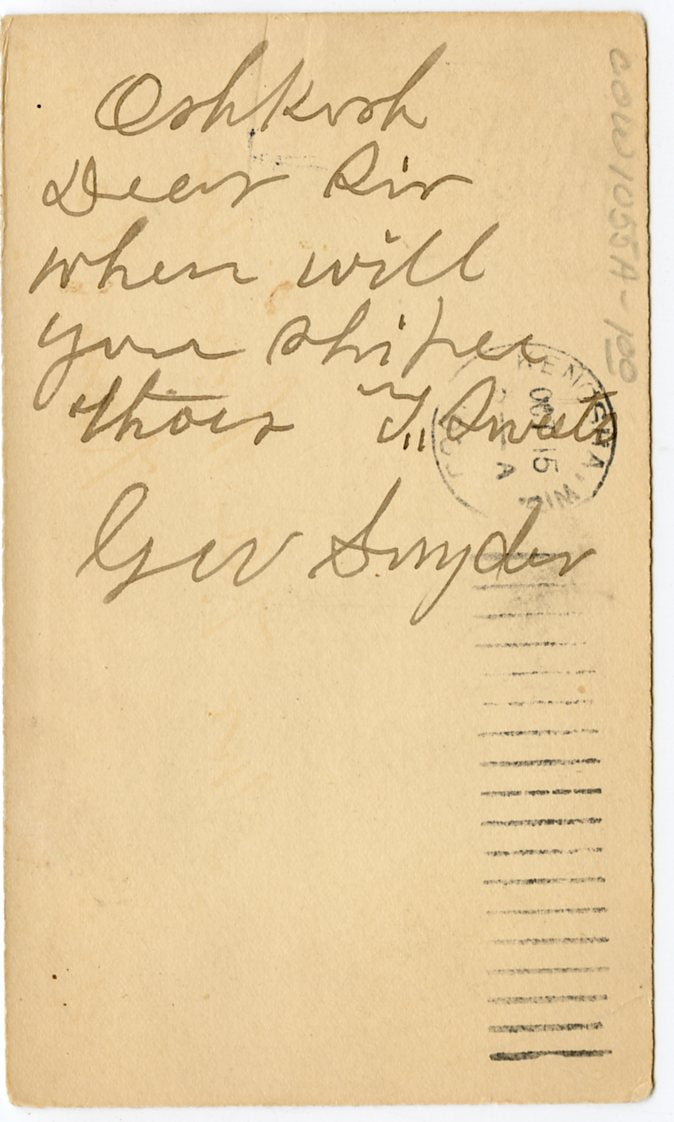 Oshkosh
Dear Sir
when will
you shipee
thoes T,, Swets
Geo Snyder
KENOSHA, WIS.
OCT 15
A
COW1055A-P00